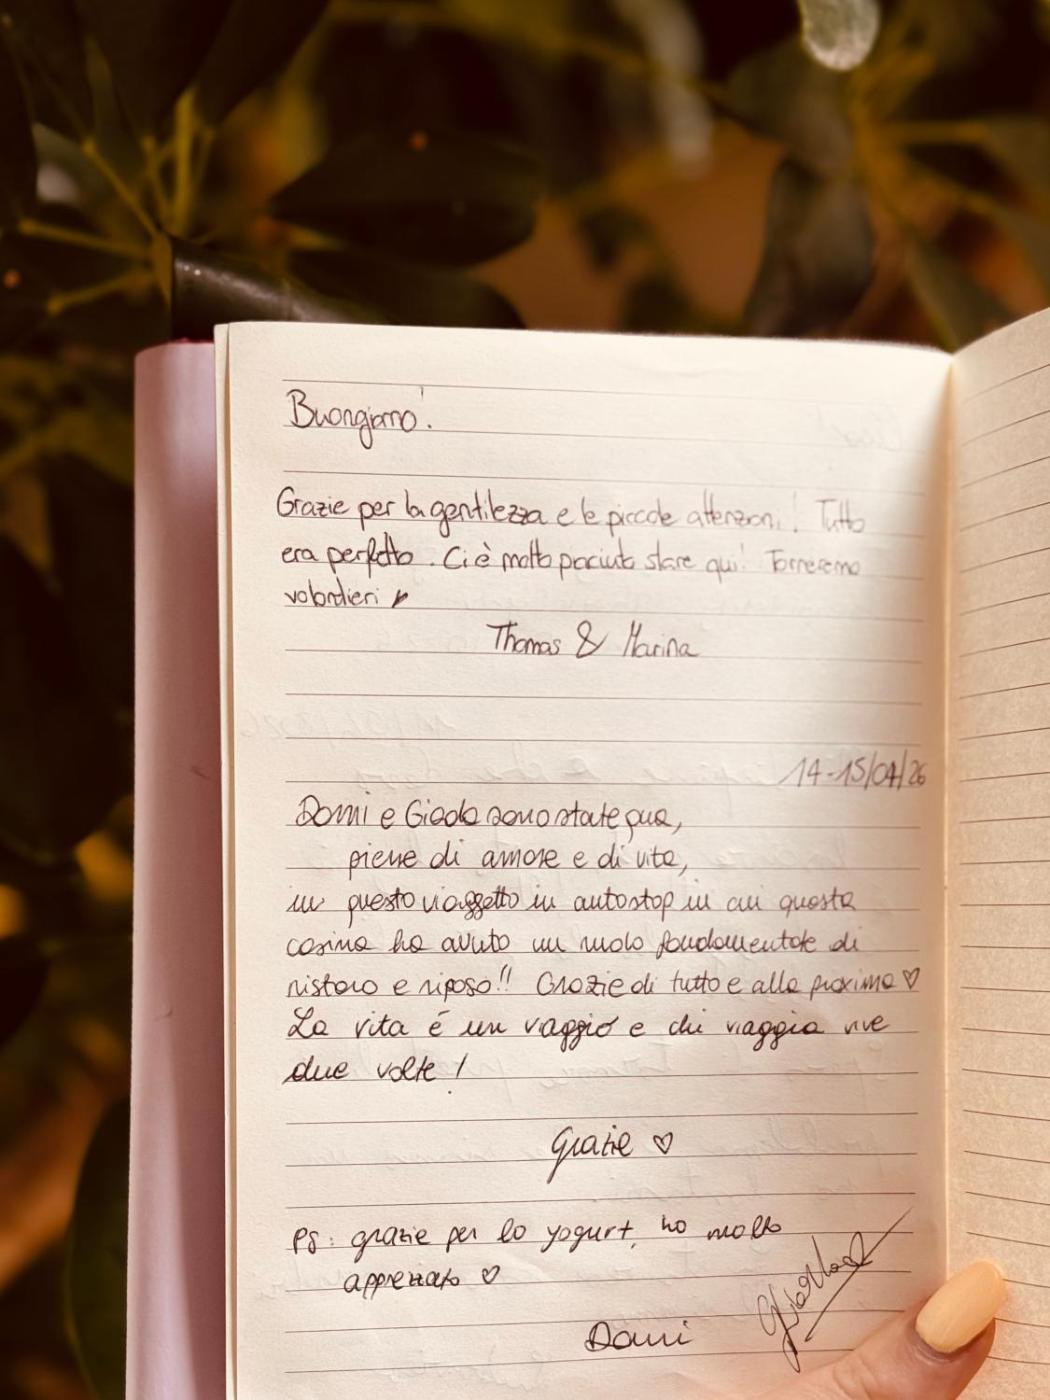 Buongiorno!
Grazie per la gentilezza e le piccole attenzioni! Tutto
era perfetto. Ci è molto piaciuto stare qui! Torneremo
volontieri
Thomas & Marina
14-15/04/26
Domi e Giada sono state qua,
piene di amore e di vita,
in questo viaggetto in autostop in cui questa
casina ha avuto un ruolo fondamentale di
ristoro e riposo!! Grazie di tutto e alla prossima ♡
La vita é un viaggio e chi viaggia vive
due volte!
Grazie ♡
PS: grazie per lo yogurt, ho molto
apprezzato ♡
Domi